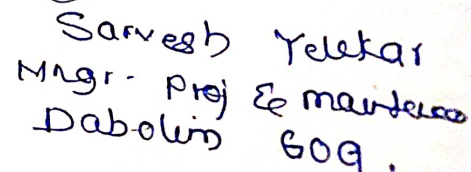 Sarvesh Yelekar
Mngr- Proj & maintence
Dabolim GOA.